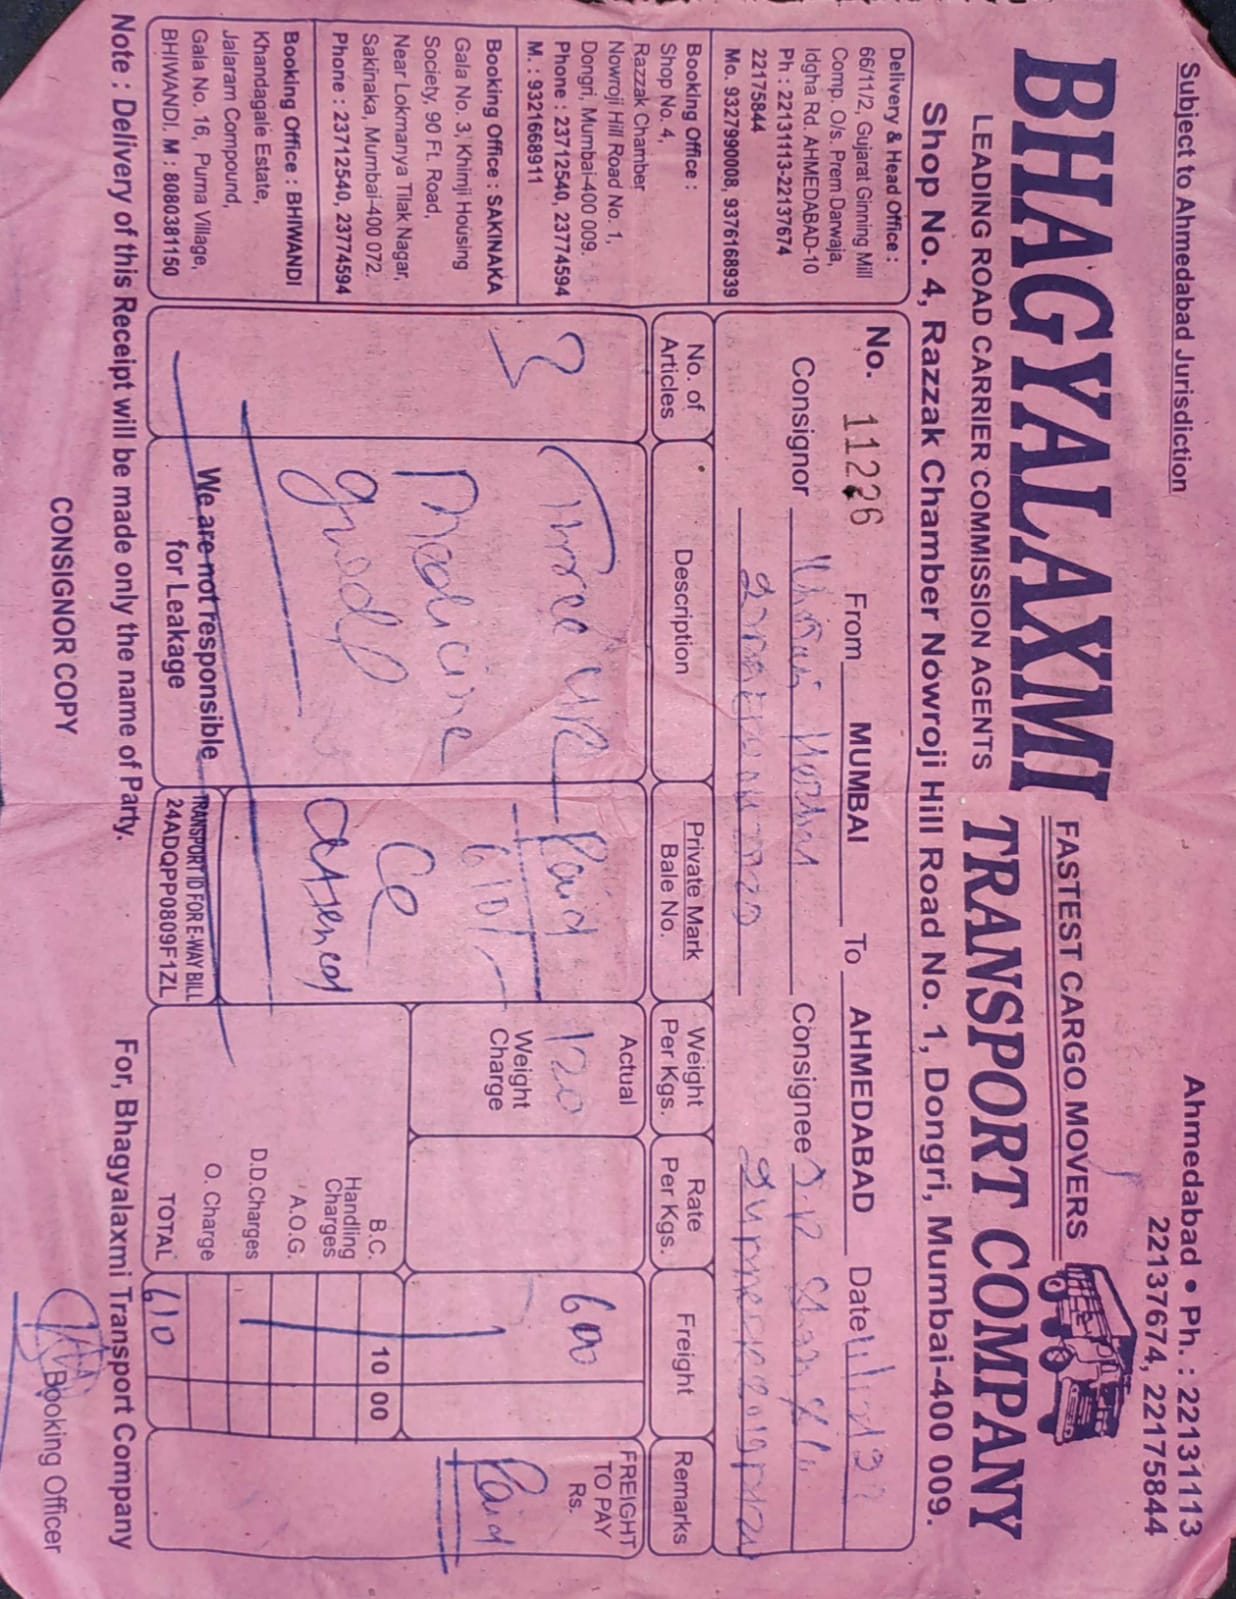 Subject to Ahmedabad Jurisdiction
Ahmedabad • Ph. : 22131113
22137674, 22175844
BHAGYALAXMI
FASTEST CARGO MOVERS
LEADING ROAD CARRIER COMMISSION AGENTS
TRANSPORT COMPANY
Shop No. 4, Razzak Chamber Nowroji Hill Road No. 1, Dongri, Mumbai-400 009.
Delivery & Head Office :
66/11/2, Gujarat Ginning Mill
Comp. O/s. Prem Darwaja,
Idgha Rd. AHMEDABAD-10
Ph : 22131113-22137674
22175844
Mo. 9327990008, 9376168939
Booking Office :
Shop No. 4,
Razzak Chamber
Nowroji Hill Road No. 1,
Dongri, Mumbai-400 009.
Phone : 23712540, 23774594
M. : 9321668911
Booking Office : SAKINAKA
Gala No. 3, Khimji Housing
Society, 90 Ft. Road,
Near Lokmanya Tilak Nagar,
Sakinaka, Mumbai-400 072.
Phone : 23712540, 23774594
Booking Office : BHIWANDI
Khandagale Estate,
Jalaram Compound,
Gala No. 16, Purna Village,
BHIWANDI. M : 8080381150
No. 11226 From MUMBAI To AHMEDABAD Date
Consignor Consignee
No. of Articles
Description
Private Mark Bale No.
Weight Per Kgs.
Rate Per Kgs.
Freight
Remarks
3
Three
Medicine
goods
Paid
610/-
Actual
120
Weight Charge
600
FREIGHT TO PAY Rs.
Paid
B.C. 10 00
Handling Charges
A.O.G.
D.D.Charges
O. Charge
TOTAL 610
We are not responsible
for Leakage
TRANSPORT ID FOR E-WAY BILL
24ADQPP0809F1ZL
Note : Delivery of this Receipt will be made only the name of Party.
For, Bhagyalaxmi Transport Company
CONSIGNOR COPY
Booking Officer